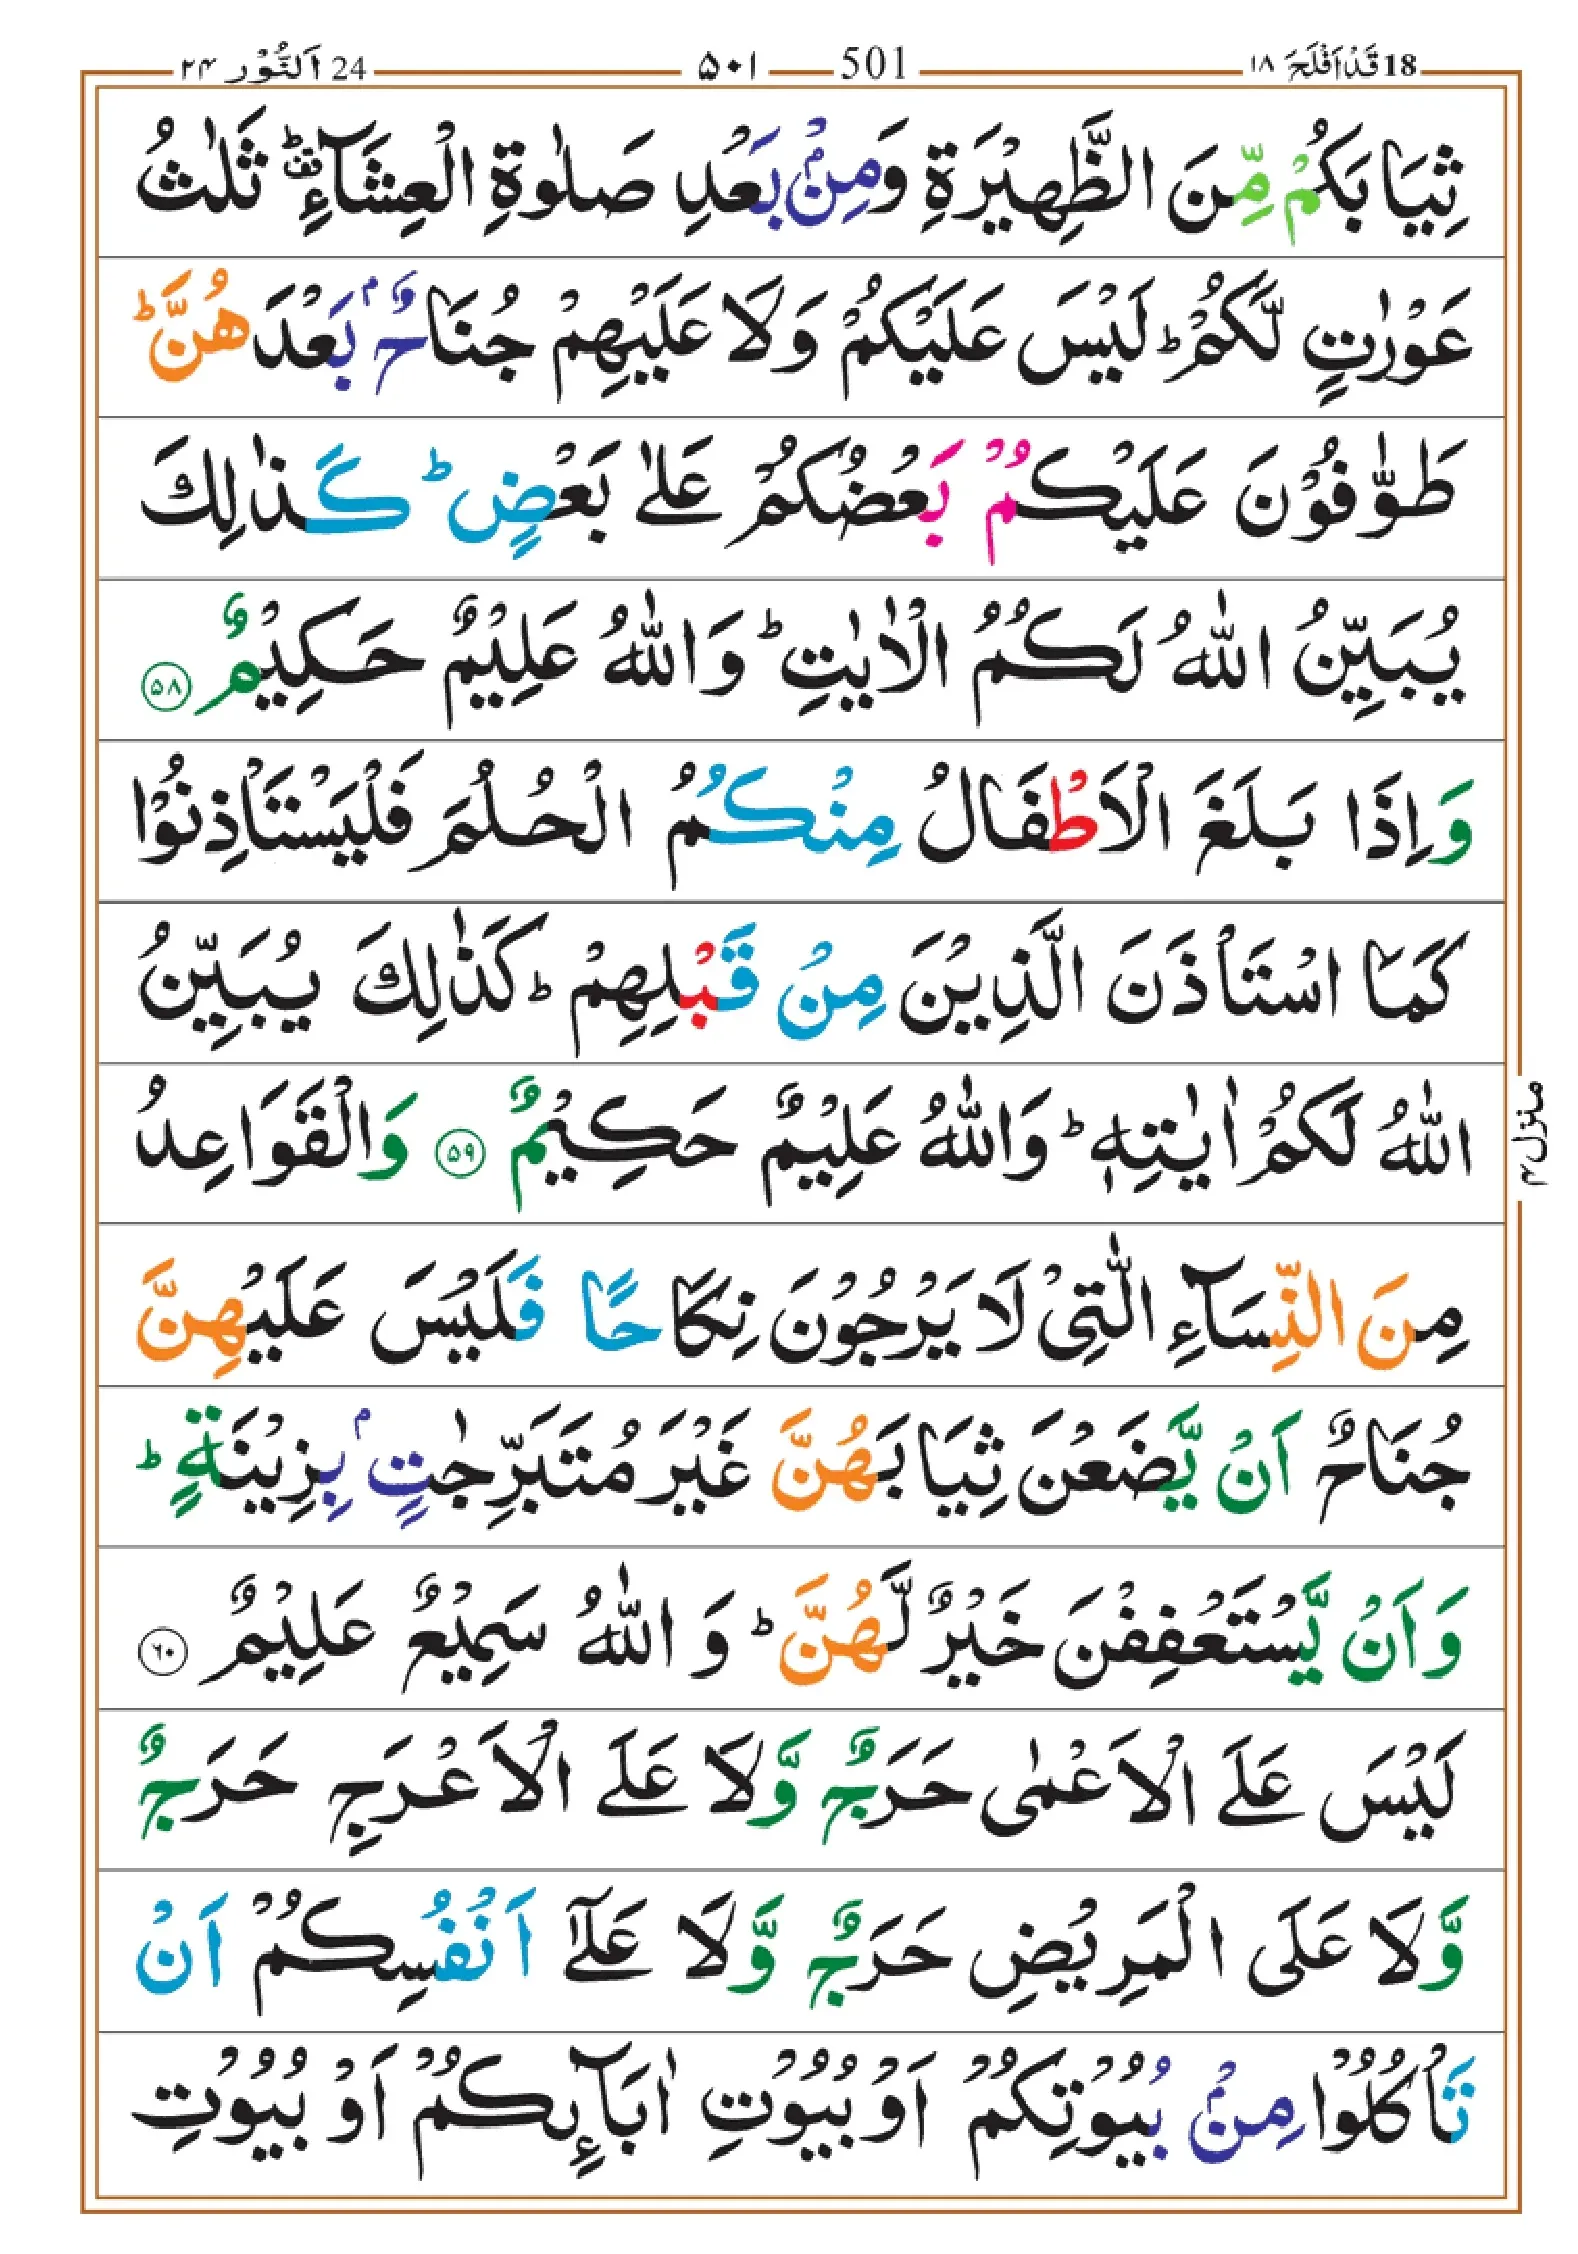 18 قَدْ اَفْلَحَ ١٨
501 ۵٠١
24 اَلنُّوْر ٢۴
ثِيَابَكُمْ مِّنَ الظَّهِيْرَةِ وَمِنْۢ بَعْدِ صَلٰوةِ الْعِشَآءِ ؕ ثَلٰثُ
عَوْرٰتٍ لَّكُمْ ؕ لَيْسَ عَلَيْكُمْ وَلَا عَلَيْهِمْ جُنَاحٌۢ بَعْدَهُنَّ ؕ
طَوّٰفُوْنَ عَلَيْكُمْ بَعْضُكُمْ عَلٰى بَعْضٍ ؕ كَذٰلِكَ
يُبَيِّنُ اللّٰهُ لَكُمُ الْاٰيٰتِ ؕ وَاللّٰهُ عَلِيْمٌ حَكِيْمٌ ۵٨
وَاِذَا بَلَغَ الْاَطْفَالُ مِنْكُمُ الْحُلُمَ فَلْيَسْتَاْذِنُوْا
كَمَا اسْتَاْذَنَ الَّذِيْنَ مِنْ قَبْلِهِمْ ؕ كَذٰلِكَ يُبَيِّنُ
اللّٰهُ لَكُمْ اٰيٰتِهٖ ؕ وَاللّٰهُ عَلِيْمٌ حَكِيْمٌ ۵٩ وَالْقَوَاعِدُ
مِنَ النِّسَآءِ الّٰتِيْ لَا يَرْجُوْنَ نِكَاحًا فَلَيْسَ عَلَيْهِنَّ
جُنَاحٌ اَنْ يَّضَعْنَ ثِيَابَهُنَّ غَيْرَ مُتَبَرِّجٰتٍۢ بِزِيْنَةٍ ؕ
وَاَنْ يَّسْتَعْفِفْنَ خَيْرٌ لَّهُنَّ ؕ وَاللّٰهُ سَمِيْعٌ عَلِيْمٌ ٦٠
لَيْسَ عَلَى الْاَعْمٰى حَرَجٌ وَّلَا عَلَى الْاَعْرَجِ حَرَجٌ
وَّلَا عَلَى الْمَرِيْضِ حَرَجٌ وَّلَا عَلٰٓى اَنْفُسِكُمْ اَنْ
تَاْكُلُوْا مِنْۢ بُيُوْتِكُمْ اَوْ بُيُوْتِ اٰبَآئِكُمْ اَوْ بُيُوْتِ
منزل ۴